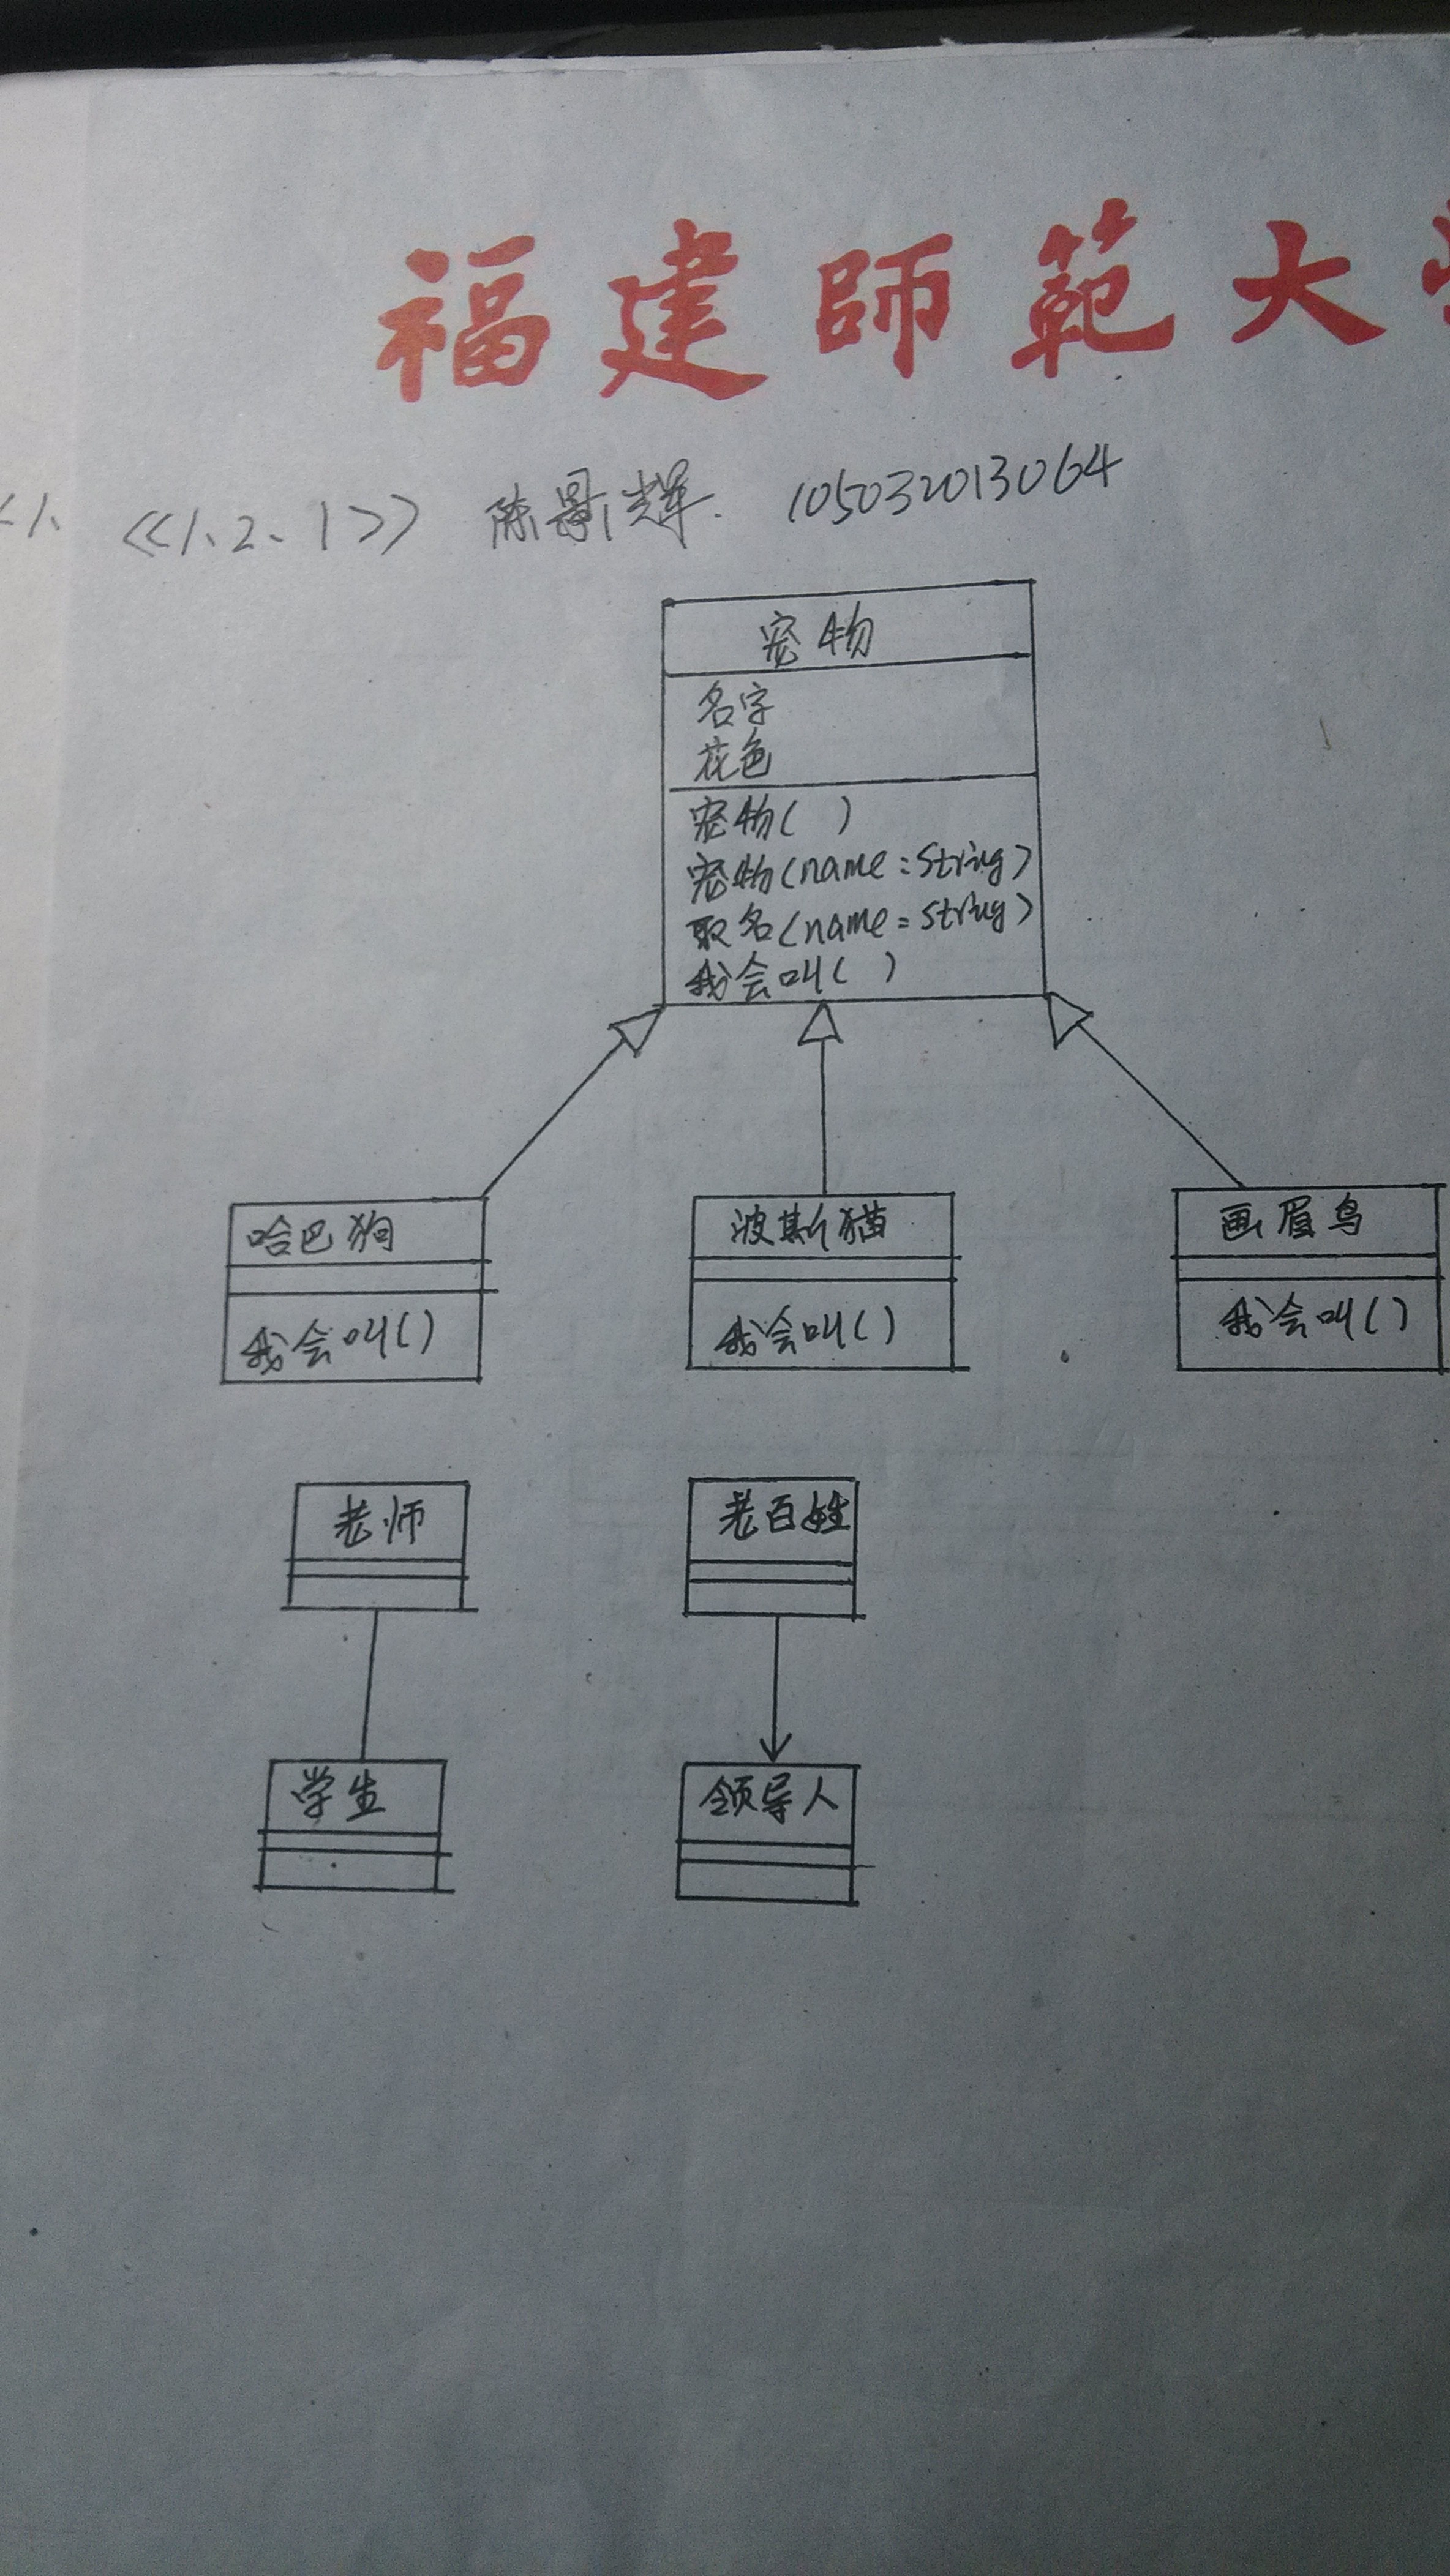 福建師範大
<1、
<<1、2、1>> 陈景辉. 105032013064
宠物
名字
花色
宠物( )
宠物(name:string)
取名(name=string)
我会叫( )
哈巴狗
我会叫()
波斯猫
我会叫()
画眉鸟
我会叫()
老师
老百姓
学生
领导人